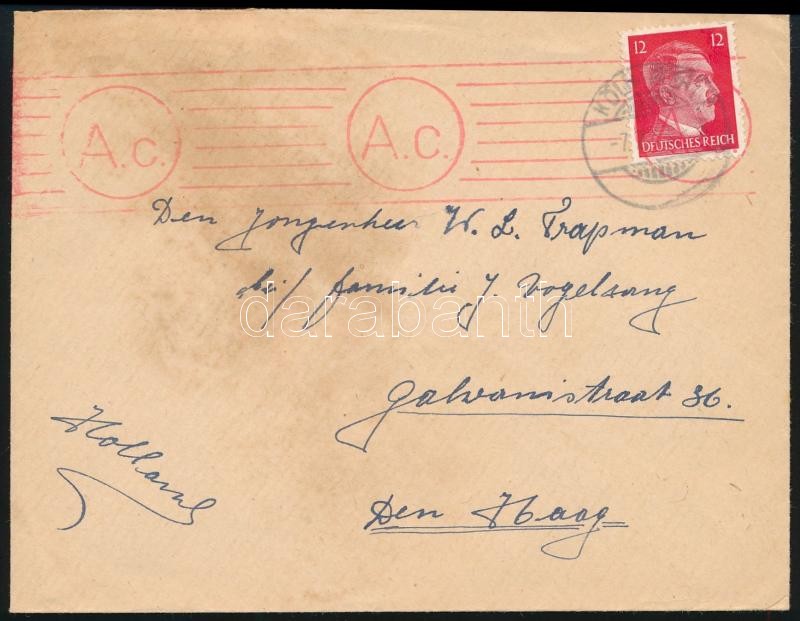 12 12
DEUTSCHES REICH
KÖLN
A.c. A.c.
Den Jongenheer W. L. Trapman
bij familie J. Vogelsang
darabanth
Galvanistraat 36.
Holland
Den Haag